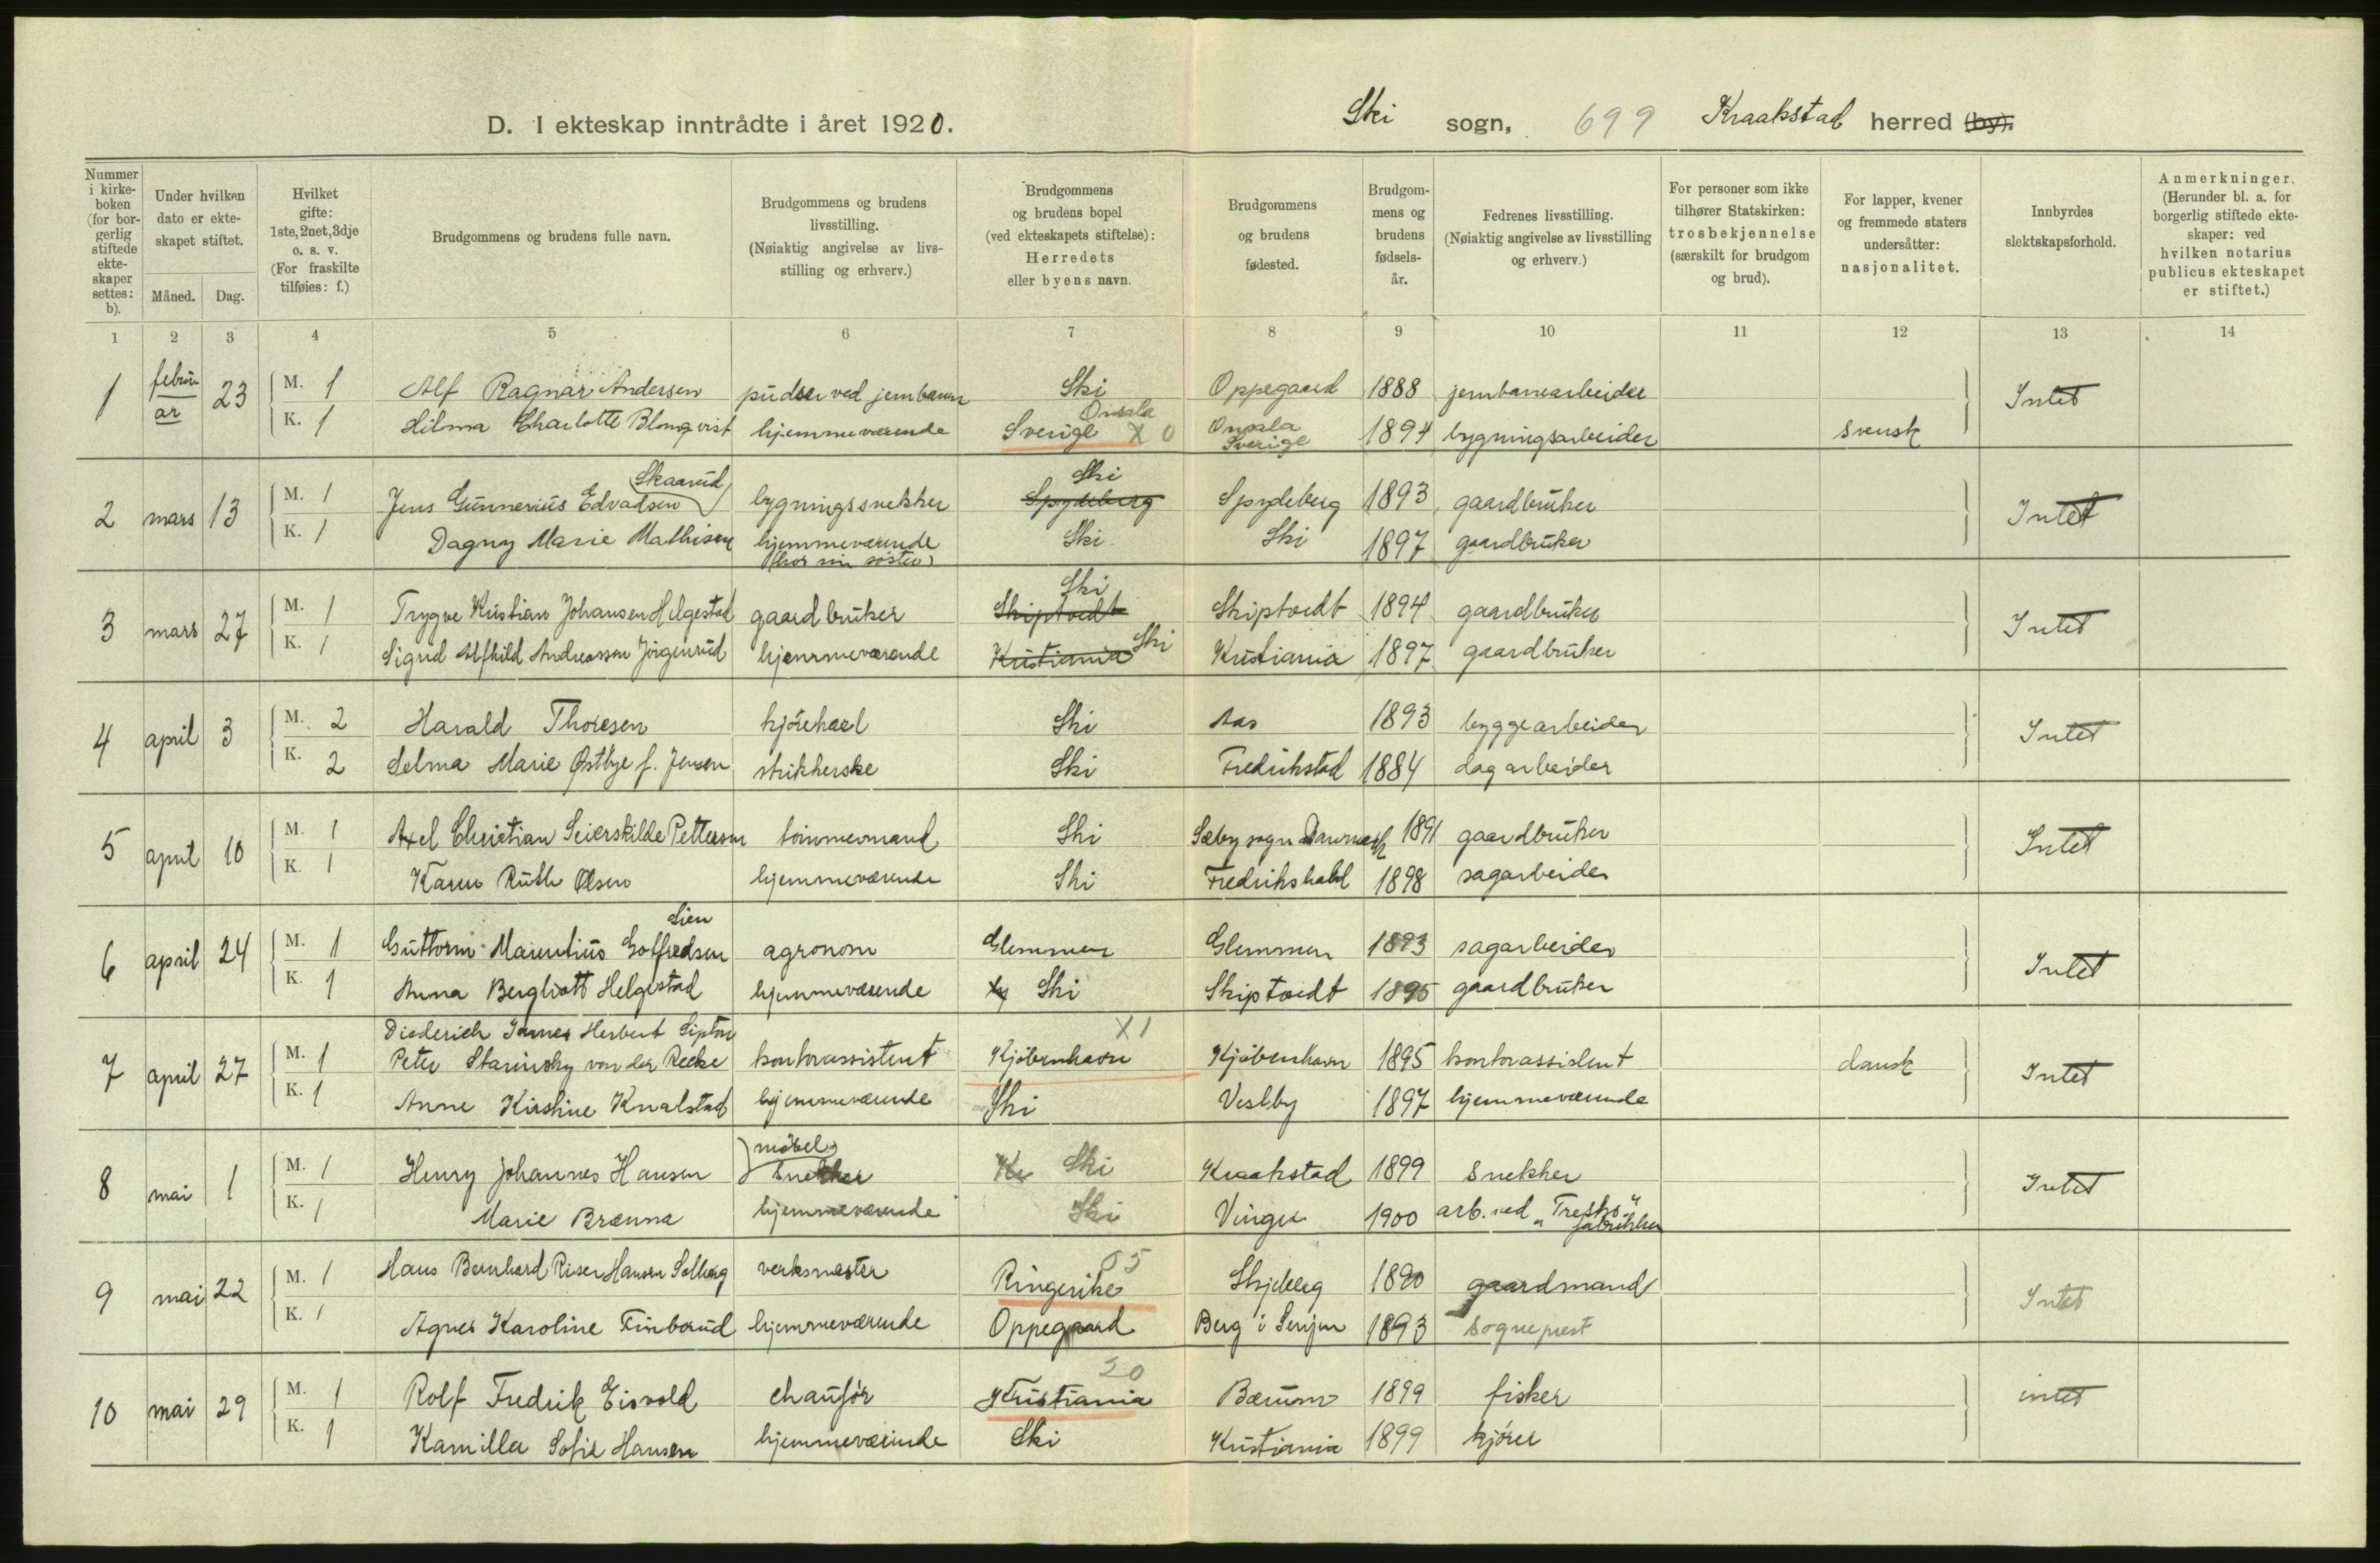 D. I ekteskap inntrådte i året 1920.
Ski sogn, 699 Kraakstad herred (by).
Nummer i kirkeboken (for borgerlig stiftede ekteskaper settes: b).
Under hvilken dato er ekteskapet stiftet.
Måned. Dag.
Hvilket gifte: 1ste, 2net, 3dje o. s. v. (For fraskilte tilføies: f.)
Brudgommens og brudens fulle navn.
Brudgommens og brudens livsstilling. (Nøiaktig angivelse av livsstilling og erhverv.)
Brudgommens og brudens bopel (ved ekteskapets stiftelse): Herredets eller byens navn.
Brudgommens og brudens fødested.
Brudgommens og brudens fødselsår.
Fedrenes livsstilling. (Nøiaktig angivelse av livsstilling og erhverv.)
For personer som ikke tilhører Statskirken: trosbekjennelse (særskilt for brudgom og brud).
For lapper, kvener og fremmede staters undersåtter: nasjonalitet.
Innbyrdes slektskapsforhold.
Anmerkninger. (Herunder bl. a. for borgerlig stiftede ekteskaper: ved hvilken notarius publicus ekteskapet er stiftet.)
1 2 3 4 5 6 7 8 9 10 11 12 13 14
1 februar 23 M. 1 Alf Ragnar Andersen pudser ved jernbanen Ski Oppegaard 1888 jernbanearbeider Intet
K. 1 Hilma Charlotte Blomqvist hjemmeværende Sverige Onsala X 0 Onsala Sverige 1894 bygningsarbeider svensk
2 mars 13 M. 1 Jens Gunnerius Edvadsen Skaarud bygningssnekker Spydeberg Ski Spydeberg 1893 gaardbruker Intet
K. 1 Dagny Marie Mathisen hjemmeværende (hos sin søster) Ski Ski 1897 gaardbruker
3 mars 27 M. 1 Trygve Kristian Johansen Helgestad gaardbruker Skiptvedt Ski Skiptvedt 1894 gaardbruker Intet
K. 1 Sigrid Alfhild Andreassen Jörgenrud hjemmeværende Kristiania Ski Kristiania 1897 gaardbruker
4 april 3 M. 2 Harald Thoresen kjörekarl Ski Aas 1893 byggearbeider Intet
K. 2 Selma Marie Østbye f. Jensen strikkerske Ski Fredrikstad 1884 dagarbeider
5 april 10 M. 1 Axel Christian Seierskilde Pettersen tömmermand Ski Sæby sogn Danmark 1891 gaardbruker Intet
K. 1 Karen Ruth Olsen hjemmeværende Ski Fredrikshald 1898 sagarbeider
6 april 24 M. 1 Guttorm Maurentius Gotfredsen Lien agronom Glemmen Glemmen 1893 sagarbeider Intet
K. 1 Anna Bergliott Helgestad hjemmeværende Ski Skiptvedt 1895 gaardbruker
7 april 27 M. 1 Diederich James Herbert Lipton Peter Starinsky von der Recke kontorassistent Kjöbenhavn X1 Kjöbenhavn 1895 kontorassistent dansk Intet
K. 1 Anne Kirstine Knalstad hjemmeværende Ski Vestby 1897 hjemmeværende
8 mai 1 M. 1 Henry Johannes Hansen möbelsnekker Kr Ski Kraakstad 1899 snekker Intet
K. 1 Marie Brænna hjemmeværende Ski Vinger 1900 arb. ved "Tresko" fabrikken
9 mai 22 M. 1 Hans Bernhard Riser Hansen Solberg verksmester Ringerike 05 Skjeberg 1890 gaardmand Intet
K. 1 Agnes Karoline Finborud hjemmeværende Oppegaard Berg i Senjen 1893 sogneprest
10 mai 29 M. 1 Rolf Fredrik Eisvold chauför Kristiania 20 Bærum 1899 fisker intet
K. 1 Kamilla Sofie Hansen hjemmeværende Ski Kristiania 1899 kjörer